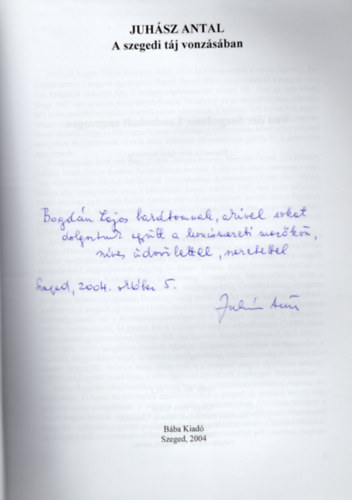 JUHÁSZ ANTAL
A szegedi táj vonzásában
Bogdán Lajos barátomnak, akivel sokat
dolgoztunk együtt a honismereti mezőkön,
szíves üdvözlettel, szeretettel
Szeged, 2004. október 5.
Juhász Antal
Bába Kiadó
Szeged, 2004